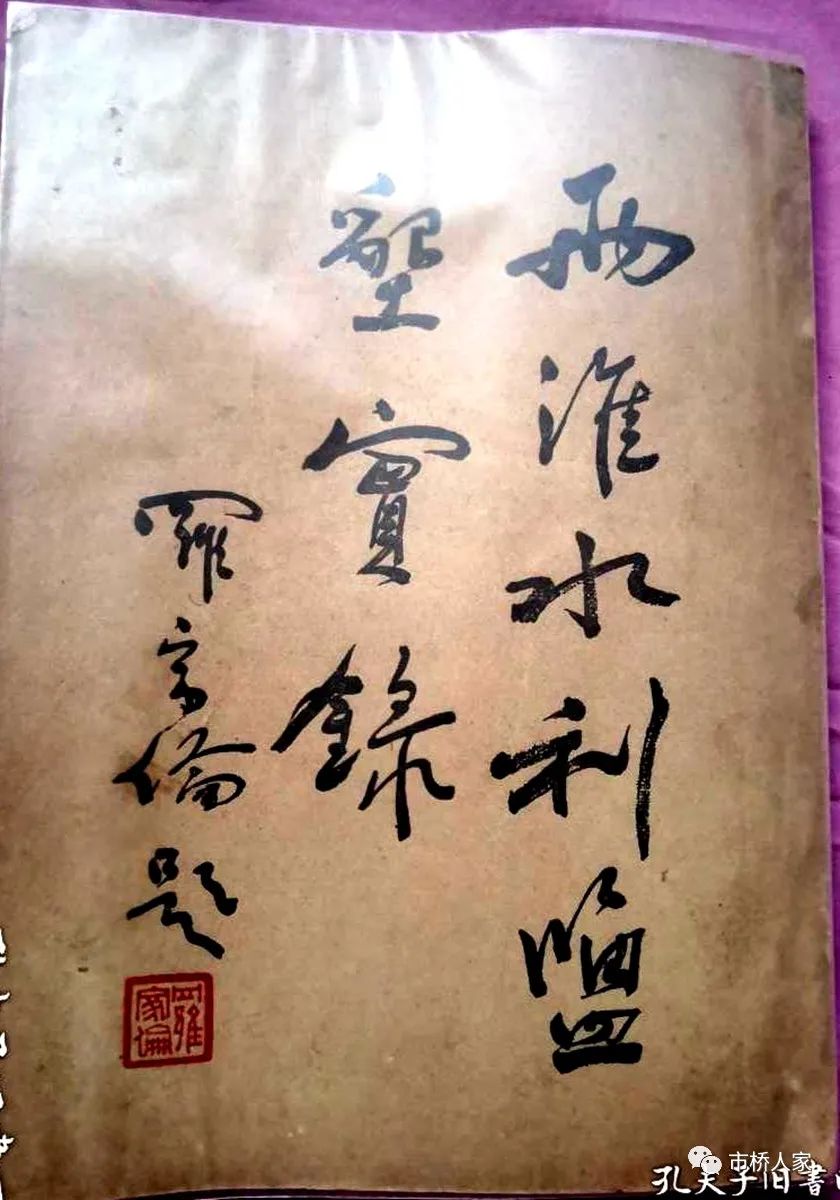 兩淮水利鹽
墾實錄
羅家倫題
羅家倫
市桥人家
孔夫子旧書